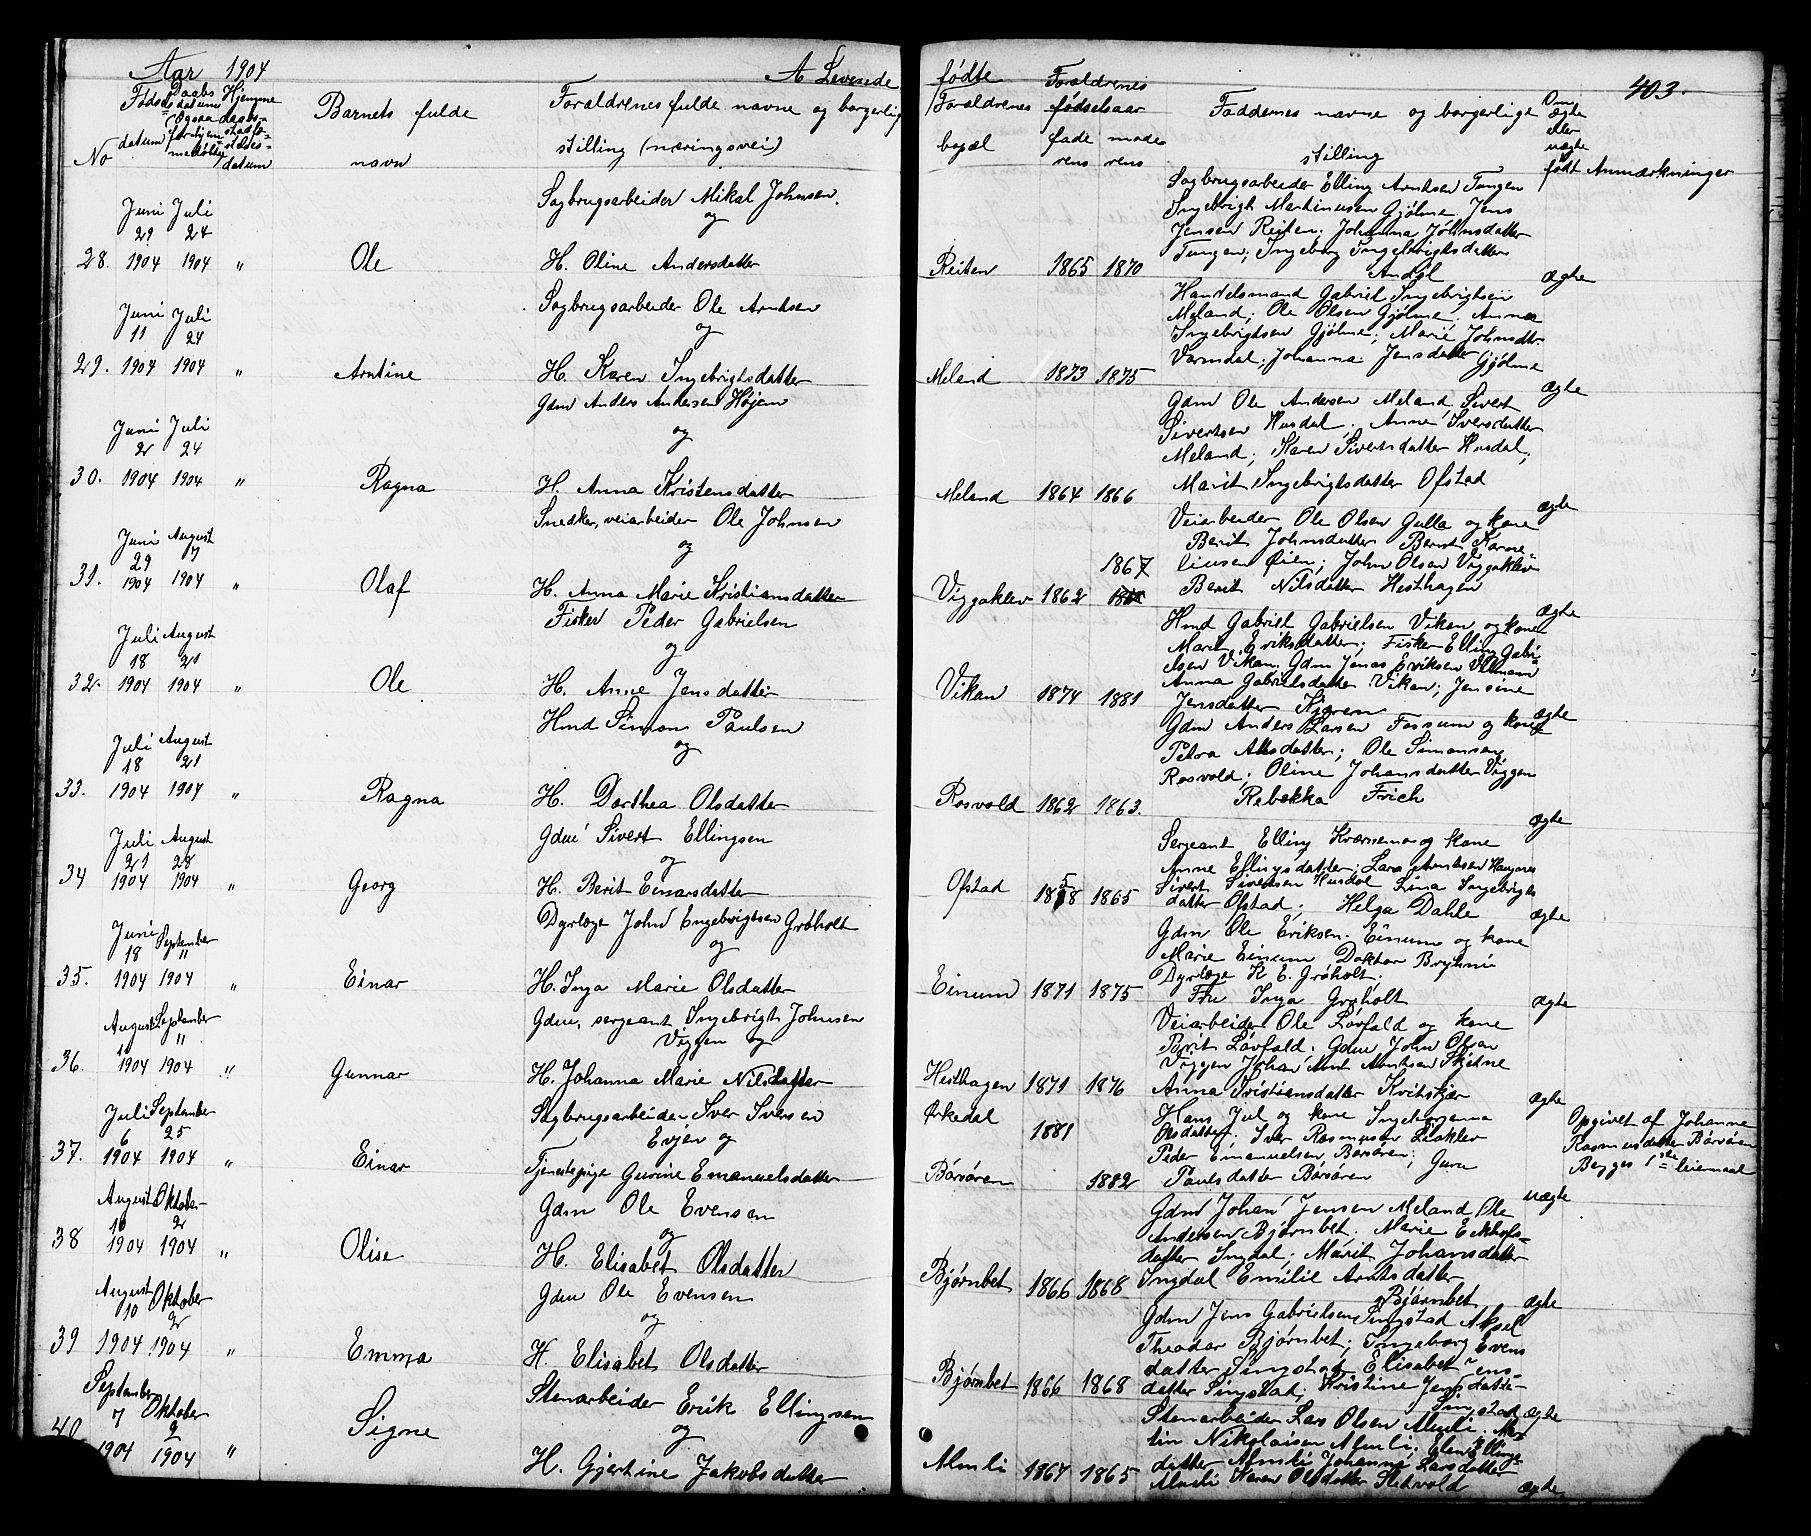 Aar 1904
A Levende fødte
403.
No
Fødsels datum
Daabs datum
Hjemme daabs
Barnets fulde navn
Forældrenes fulde navne og borgerlig stilling (næringsvei)
Forældrenes bopæl
Forældrenes fødselsaar
faderens
moderens
Faddernes navne og borgerlige stilling
Om ægte eller uægte født
Anmærkninger
28. Juni 29 1904 Juli 24 1904 " Ole
Sagbrugsarbeider Mikal Johnsen
og
H. Oline Andersdatter
Reiten 1865 1870
Sagbrugsarbeider Elling Arntsen Tangen
Ingebrigt Martinusen Gjølme, Jens
Jensen Reiten; Johanna Johnsdatter
Tangen; Ingeborg Ingebrigtsdatter
ægte
29. Juni 11 1904 Juli 24 1904 " Arntine
Sagbrugsarbeider Ole Arntsen
og
H. Karen Ingebrigtsdatter
Meland 1873 1875
Handelsmand Gabriel Ingebrigtsen
Meland; Ole Olsen Gjølme. Anna
Ingebrigtsen Gjølme; Marie Johnsdtr.
Johanna Jensdatter Gjølme
ægte
30. Juni 2 1904 Juli 24 1904 " Ragna
Gdm Anders Andersen Højem
og
H. Anna Kristensdatter
Meland 1864 1866
Gdm Ole Andersen Meland. Sivert
Sivertsen Husdal. Anne Iversdatter
Meland; Karen Sivertsdatter Husdal;
Marit Ingebrigtsdatter Ofstad
ægte
31. Juni 29 1904 August 7 1904 " Olaf
Snedker, veiarbeider Ole Johnsen
og
H. Anna Marie Kristiansdatter
Viggaklev 1862 1867
Veiarbeider Ole Olsen Gulla og kone
Berit Johnsdatter Bernt Korne-
liusen Øien; John Olsen Viggaklev
Berit Nilsdatter Hesthagen
ægte
32. Juli 18 1904 August 21 1904 " Ole
Fisker Peder Gabrielsen
og
H. Anne Jensdatter
Vikan 1874 1881
Hmd Gabriel Gabrielsen Vikan og kone
Marit Eriksdatter; Fisker Elling Gabri-
elsen Vikan. Gdm Jonas Eriksen
Anna Gabrielsdatter Vikan; Jensine
Jensdatter
ægte
33. Juli 18 1904 August 21 1904 " Ragna
Hmd Simon Paulsen
og
H. Dorthea Olsdatter
Rosvold 1862 1863.
Gdm Anders Larsen Fossum og kone
Petra Atlesdatter; Ole Simonsen
Rosvold. Oline Johansdatter Viggen
Rebekka Frich
ægte
34 Juli 21 1904 August 28 1904 " Georg
Gdm Sivert Ellingsen
og
H. Berit Einarsdatter
Ofstad 1858 1865
Sergeant Elling Kværnmo og kone
Anne Ellingsdatter; Lars Arntsen Haugnes
Sivert Sivertsen Husdal Lina Ingebrigts
datter Ofstad; Helga Dahle
ægte
35. Juni 18 1904 September " 1904 " Einar
Dyrlæge John Engebrigtsen Grøholt
og
H. Inga Marie Olsdatter
Einum 1871 1875
Gdm Ole Eriksen Einum og kone
Marie Einum Doktor Bryhni
Dyrlæge K. E. Grøholt.
Fru Inga Grøholt
ægte
36. August 10 1904 September " 1904 " Gunnar
Gdm, sergeant Ingebrigt Johnsen
Viggen og
H. Johanna Marie Nilsdatter
Hesthagen 1871 1876
Veiarbeider Ole Lovfald og kone
Berit Lovfald. Gdm John Olsen
Viggen Johan Arnt Arntsen
Anna Kristiansdatter
ægte
37. Juli 6 1904 September 25 1904 " Einar
Sagbrugsarbeider Iver Iversen
Evjen og
Tjenestepige Gurine Emanuelsdatter
Ørkedal 1881
Børsøren 1882
Hans Jul og kone
Olsdatter; Iver Rasmusen
Peder Emanuelsen Børsøren; Guru
Paulsdatter Børsøren
uægte
Opgivet af Johanne
Rasmusdatter Børsøren
Begges 1ste leiemaal
38 August 10 1904 Oktober 2 1904 " Olise
Gdm Ole Evensen
og
H. Elisabet Olsdatter
Bjørnbet 1866 1868
Gdm Johan Jensen Meland Ole
Andersen Bjørnbet. Marie
datter Ingdal; Marit Johansdatter
Ingdal Emilie Arntsdatter
Bjørnbet
ægte
39 August 10 1904 Oktober 2 1904 " Emma
Gdm Ole Evensen
og
H. Elisabet Olsdatter
Bjørnbet 1866 1868
Gdm Jens Gabrielsen Singstad Aksel
Theodor Bjørnbet; Ingeborg Evens
datter Singstad Elisabet Jens-
datter Singstad; Kristine Jensdatter
Singstad
ægte
40 September 7 1904 Oktober 2 1904 " Signe
Stenarbeider Erik Ellingsen
og
H. Gjertine Jakobsdatter
Almli 1867 1865
Stenarbeider Lars Olsen Almli;
Nikolaisen Almli; Ellings-
datter Almli Johanna Larsdatter
Almli Karen Olsdatter
ægte